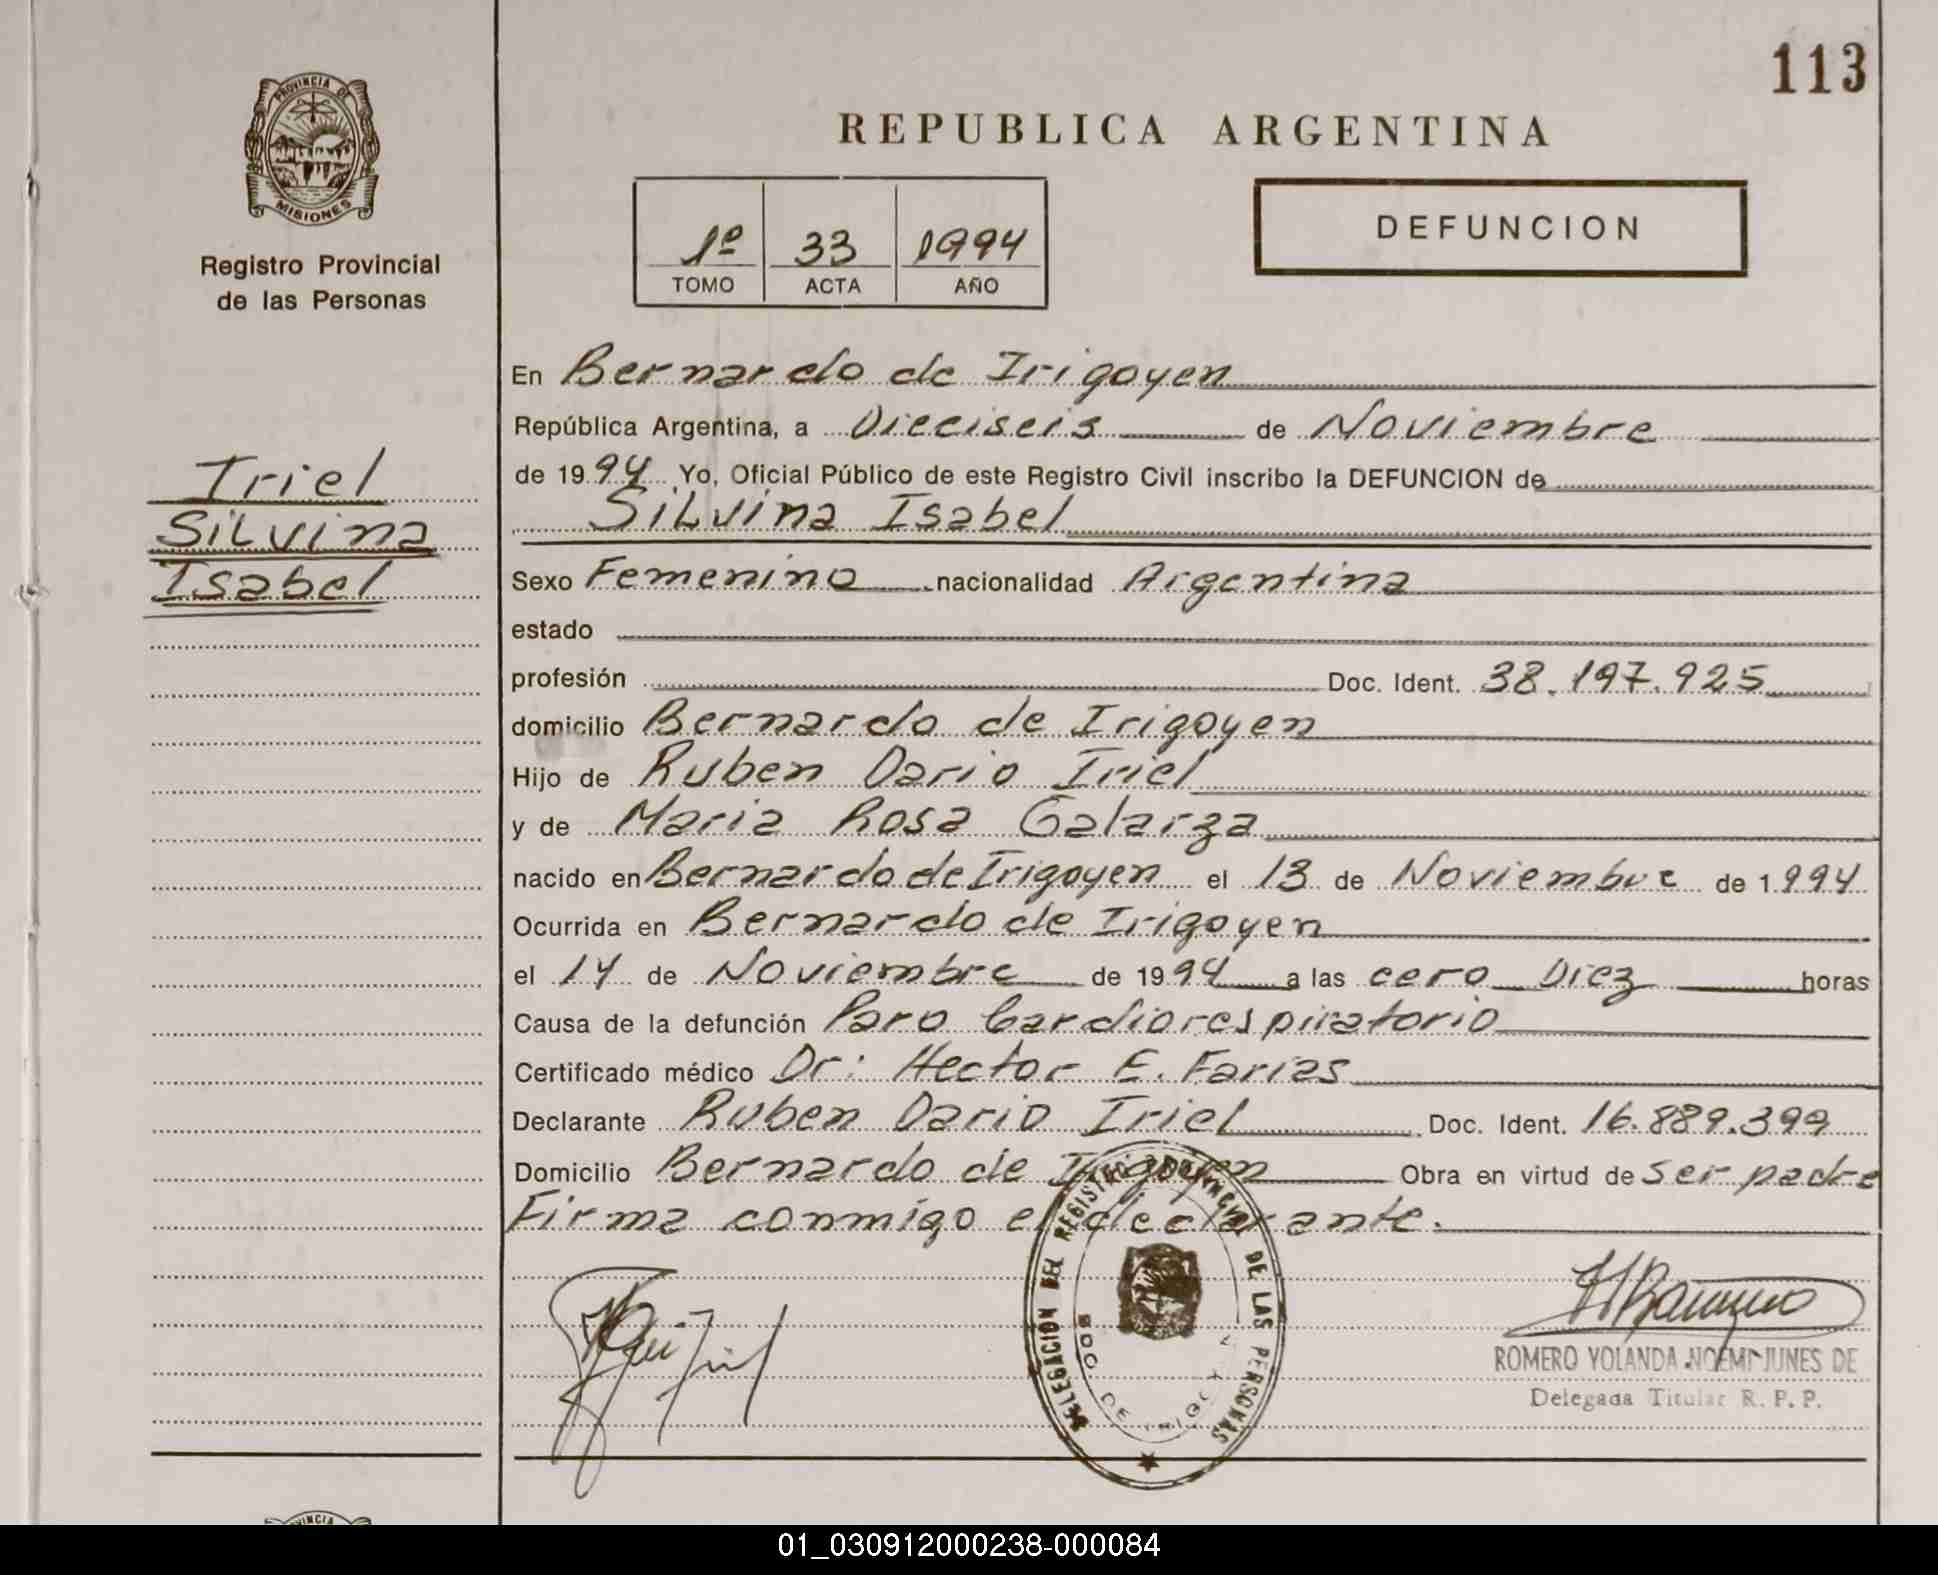 113
PROVINCIA DE
MISIONES
Registro Provincial
de las Personas
REPUBLICA ARGENTINA
1º 33 1994
TOMO ACTA AÑO
DEFUNCION
Iriel
Silvina
Isabel
En Bernardo de Irigoyen
República Argentina, a Dieciseis de Noviembre
de 1994 Yo, Oficial Público de este Registro Civil inscribo la DEFUNCION de
Silvina Isabel
Sexo Femenino nacionalidad Argentina
estado
profesión Doc. Ident. 38.197.925
domicilio Bernardo de Irigoyen
Hijo de Ruben Dario Iriel
y de Maria Rosa Galarza
nacido en Bernardo de Irigoyen el 13 de Noviembre de 1994
Ocurrida en Bernardo de Irigoyen
el 14 de Noviembre de 1994 a las cero Diez horas
Causa de la defunción Paro Cardiorespiratorio
Certificado médico Dr: Hector E. Farias
Declarante Ruben Dario Iriel Doc. Ident. 16.889.399
Domicilio Bernardo de Irigoyen Obra en virtud de ser padre
Firma conmigo el declarante.
DELEGACION DEL REGISTRO PROVINCIAL DE LAS PERSONAS
BDO. DE IRIGOYEN
ROMERO YOLANDA NOEMI JUNES DE
Delegada Titular R. P. P.
01_030912000238-000084